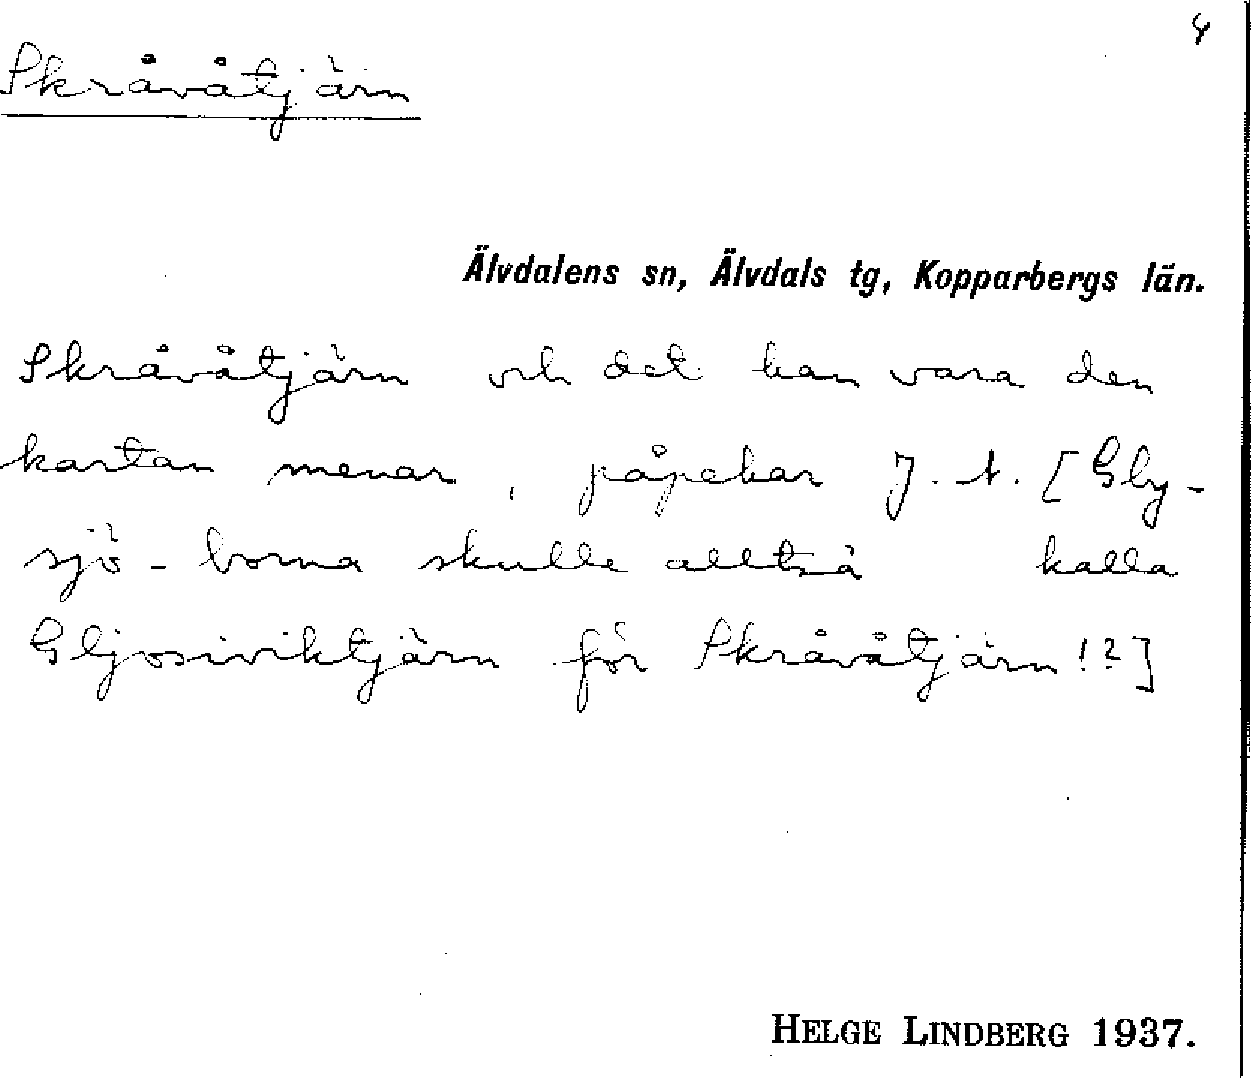 4
Skråvåtjärn
Älvdalens sn, Älvdals tg, Kopparbergs län.
Skråvåtjärn och det kan vara den
kartan menar, påpekar J. A. [Gly-
sjö-borna skulle alltså kalla
Gljosiviktjärn för Skråvåtjärn!?]
HELGE LINDBERG 1937.